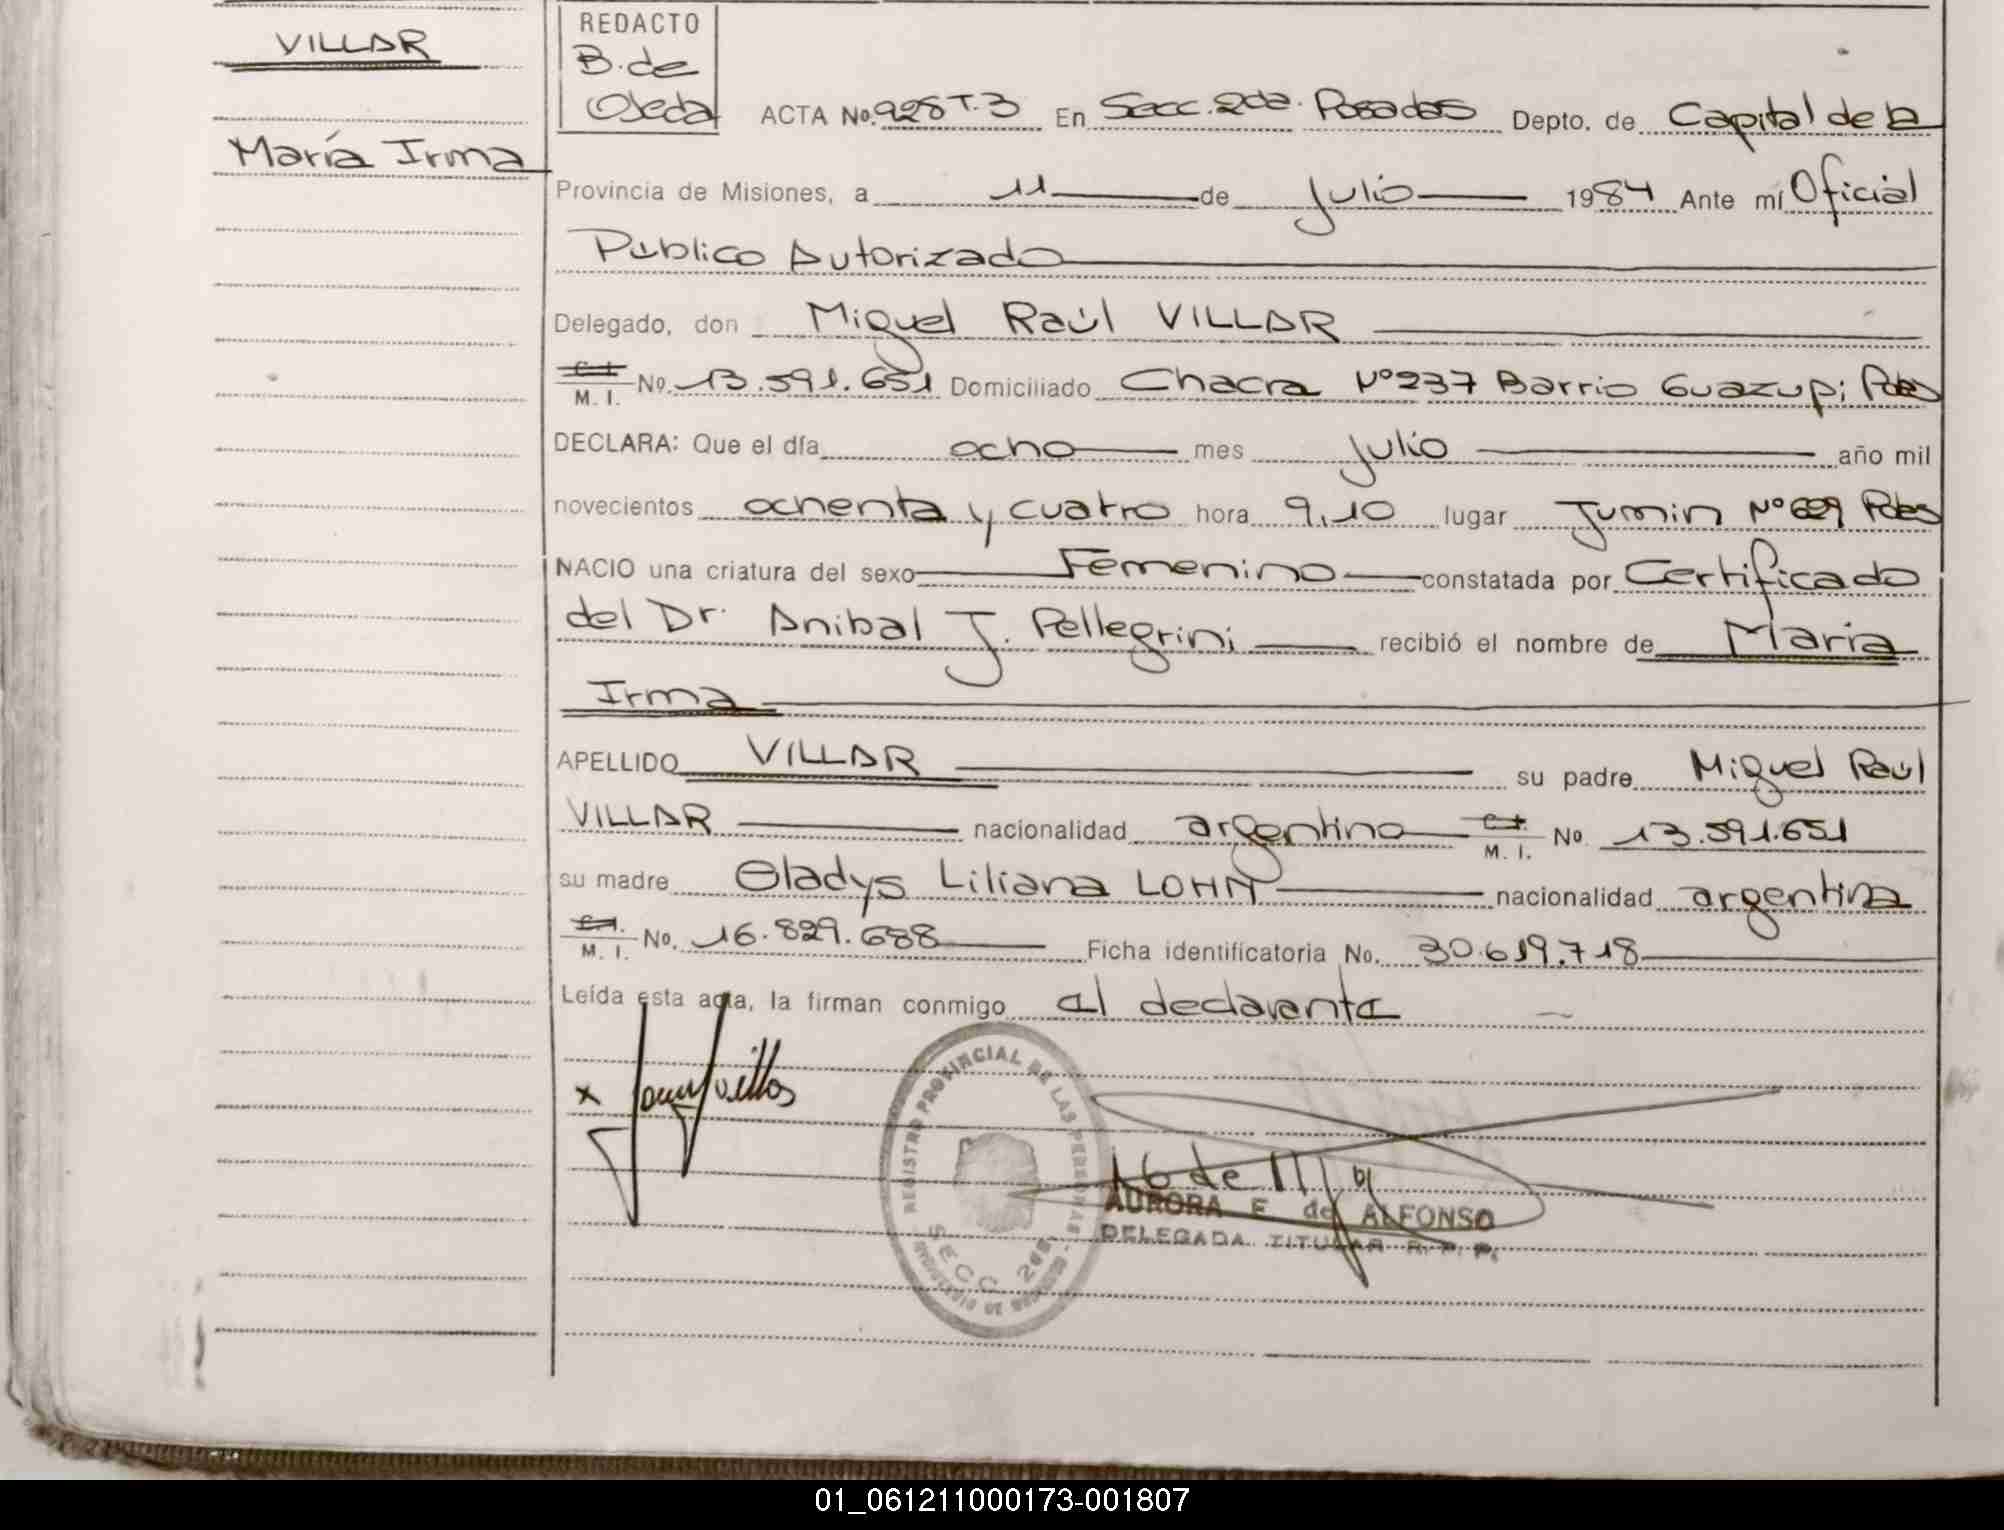 VILLAR
María Irma
REDACTO
B. de
Ojeda
ACTA No. 928 T.3 En Secc. 2da. Posadas Depto. de Capital de la
Provincia de Misiones, a 11 de Julio 1984 Ante mí Oficial
Público Autorizado
Delegado, don Miguel Raúl VILLAR
C.I. M. I. No. 13.591.651 Domiciliado Chacra Nº 237 Barrio Guazupi Pdas
DECLARA: Que el día ocho mes Julio año mil
novecientos ochenta y cuatro hora 9,10 lugar Junin Nº 629 Pdas
NACIO una criatura del sexo Femenino constatada por Certificado
del Dr. Anibal J. Pellegrini recibió el nombre de María
Irma
APELLIDO VILLAR su padre Miguel Raúl
VILLAR nacionalidad argentino C.I. M. I. No. 13.591.651
su madre Gladys Liliana LOHN nacionalidad argentina
C.I. M. I. No. 16.829.688 Ficha identificatoria No. 30.619.718
Leída esta acta, la firman conmigo el declarante
x
REGISTRO PROVINCIAL DE LAS PERSONAS
SECC. 2da.
AURORA E de ALFONSO
DELEGADA TITULAR R. P. P.
01_061211000173-001807